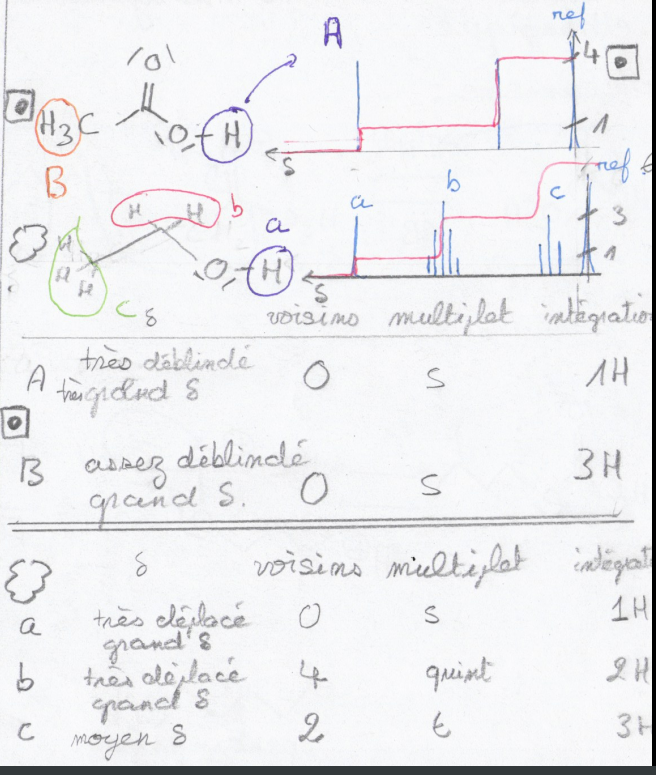 ref
A
4
H3C
O
O
H
1
B
δ
ref
H H b
a
a
b
c
3
H
H
H
O
H
1
c
δ
δ
voisins multiplet intégratio
très déblindé
A très grand δ 0 s 1H
assez déblindé
B grand δ. 0 s 3H
δ voisins multiplet intégrat
a très déplacé 0 s 1H
grand δ
b très déplacé 4 quint 2H
grand δ
c moyen δ 2 t 3H